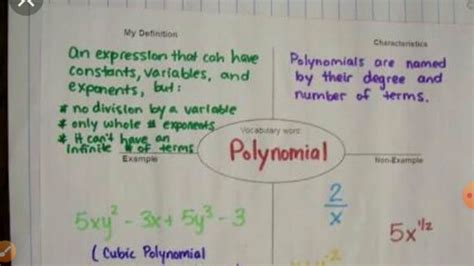 My Definition
An expression that can have
constants, variables, and
exponents, but:
* no division by a variable
* only whole # exponents
* it can't have an
infinite # of terms
Characteristics
Polynomials are named
by their degree and
number of terms.
Vocabulary word
Polynomial
Example
5xy² - 3x + 5y³ - 3
(Cubic Polynomial
Non-Example
2/x
5x^1/2